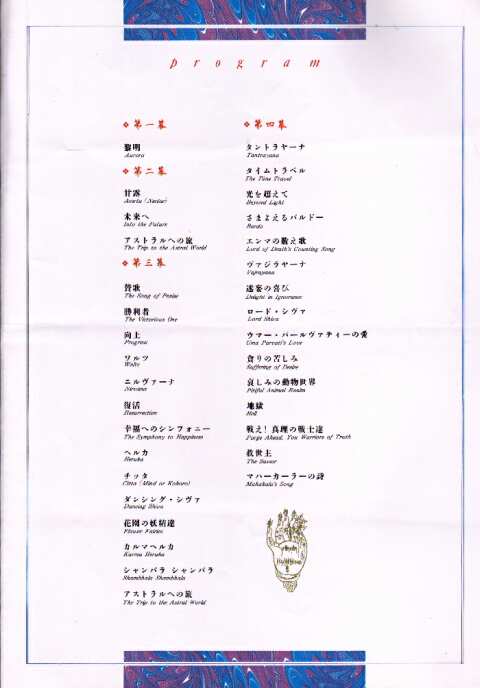 program
第一幕
黎明
Aurora
第二幕
甘露
Amrita (Nectar)
未来へ
Into the Future
アストラルへの旅
The Trip to the Astral World
第三幕
賛歌
The Song of Praise
勝利者
The Victorious One
向上
Progress
ワルツ
Waltz
ニルヴァーナ
Nirvana
復活
Resurrection
幸福へのシンフォニー
The Symphony to Happiness
ヘルカ
Heruka
チッタ
Citta (Mind or Kokoro)
ダンシング・シヴァ
Dancing Shiva
花園の妖精達
Flower Fairies
カルマヘルカ
Karma Heruka
シャンバラ シャンバラ
Shambhala Shambhala
アストラルへの旅
The Trip to the Astral World
第四幕
タントラヤーナ
Tantrayana
タイムトラベル
The Time Travel
光を超えて
Beyond Light
さまよえるバルドー
Bardo
エンマの数え歌
Lord of Death's Counting Song
ヴァジラヤーナ
Vajrayana
迷妄の喜び
Delight in Ignorance
ロード・シヴァ
Lord Shiva
ウマー・パールヴァティーの愛
Uma Parvati's Love
貪りの苦しみ
Suffering of Desire
哀しみの動物世界
Pitiful Animal Realm
地獄
Hell
戦え!真理の戦士達
Forge Ahead, You Warriors of Truth
救世主
The Savior
マハーカーラーの詩
Mahakala's Song